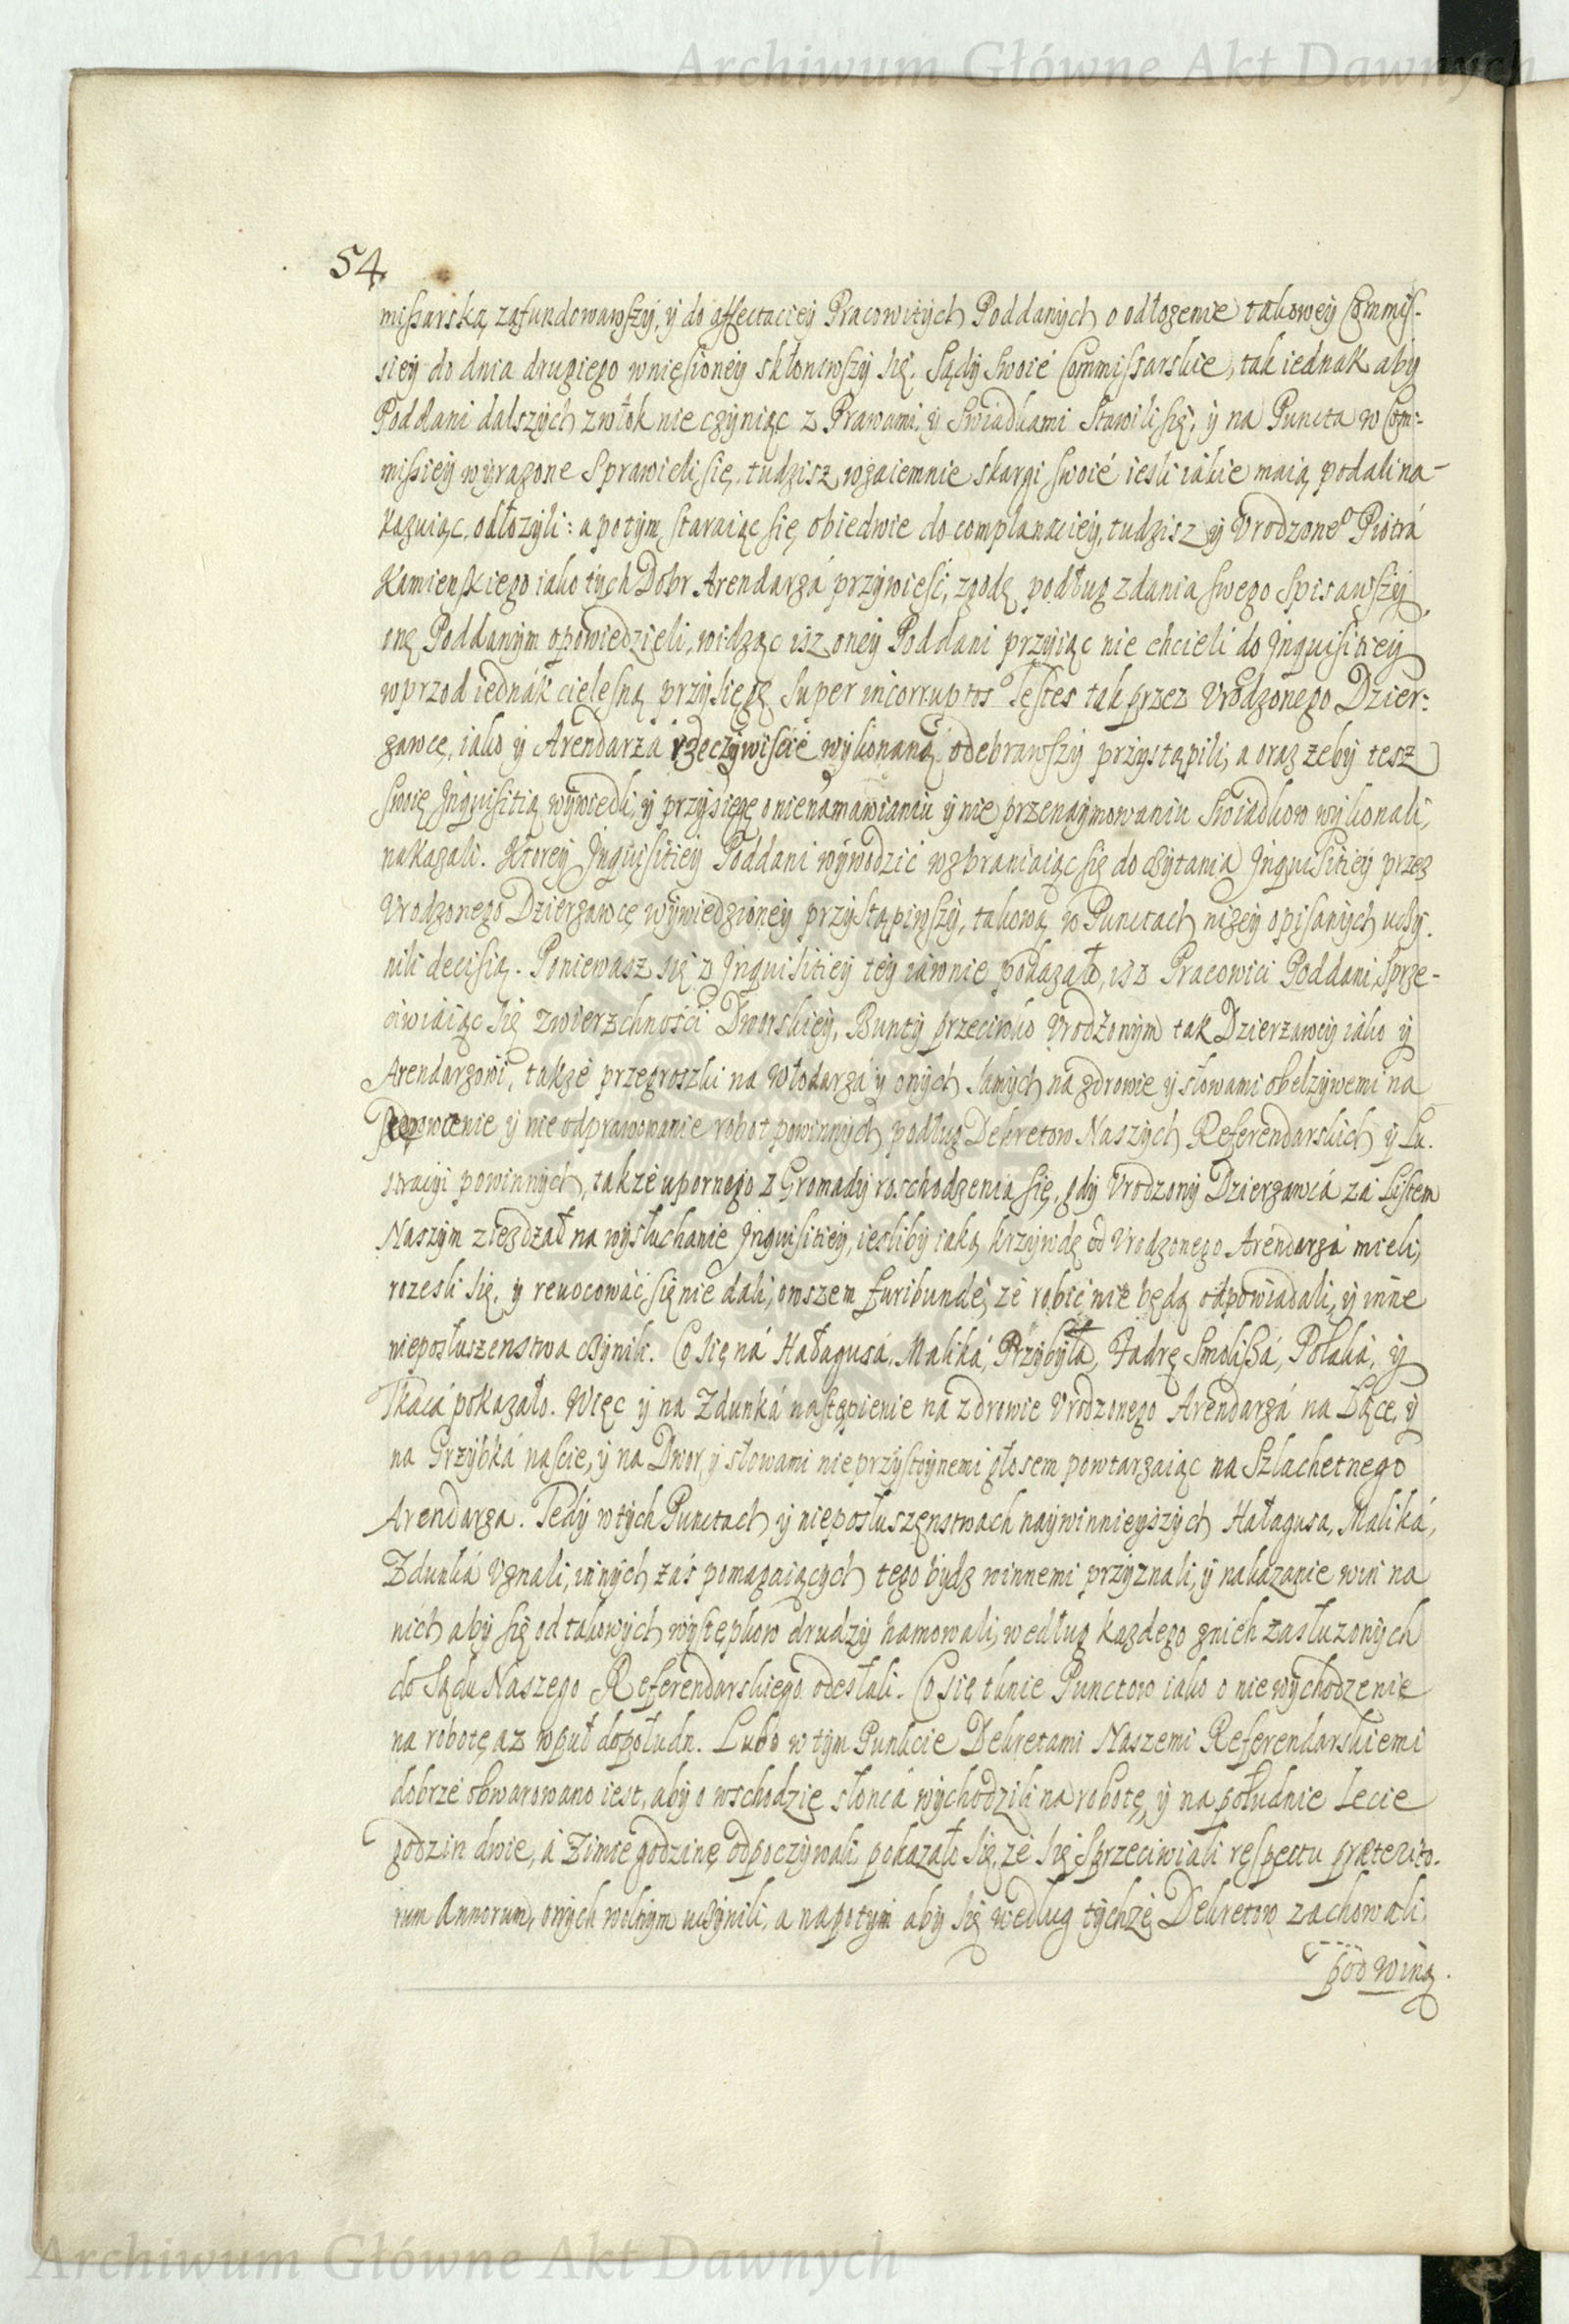 Archiwum Główne Akt Dawnych
54
missarską zafundowawszy, y do affectaciey Pracowitych Poddanych o odłozenie takowey Commis-
siey do dnia drugiego wniesioney skłoniwszy się. Sądy swoie Commissarskie, tak iednak aby
Poddani dalszych zwłok nie czyniąc z Prawami, y Swiadkami stawili się, y na Puncta w Com:
missiey wyrazone sprawieli się, tudzisz wzaiemnie skargi swoié iesli iakie maią podali na-
kazuiąc, odłozyli: a potym staraiąc się obiedwie do complanaciey, tudzisz y Vrodzoneo Piotrá
Kamienskiego iako tych Dobr Arendarzá przywiesć, zgodę podług zdania swego spisawszy
onę Poddanym opowiedzieli, widząc isz oney Poddani przyiąc nie chcieli do Inquisitiey
wprzod iednák cielesną przysięgę super incorruptos Testes tak przez Vrodzonego Dzier:
zawcę, iako y Arendarza rzeczywiscié wykonaną odebrawszy przystąpili, a oraz zeby tesz
swoię Inquisitią wywiedli, y przysięgę o nienamawianiu y nie przenaymowaniu Swiadkow wykonali,
nakazali. Ktorey Inquisitiey Poddani wywodzić wzbraniaiąc się do czytania Inquisitiey przez
Vrodzonego Dzierzawcę wywiedzioney przystąpiwszy, takową w Punctach nizey opisanych uczy-
nili decisią. Poniewasz się z Inquisitiey tey iawnie pokazało, isz Pracowici Poddani sprze-
ciwiaiąc się zwierzchnosći Dworskiey, Bunty przeciwko Vrodzonym tak Dzierzawcy iako y
Arendarzowi, takze przegroszki na Włodarzá y onych samych na zdrowie y słowami obelzywemi na
y nie odprawowanie robot powinnych podług Dekretow Naszych Referendarskich y Lu-
stracyi powinnych, takze upornego z Gromady roschodzenia się, gdy Vrodzony Dzierzawcá zá Listem
Naszym ziezdzał na wysłuchanie Inquisitiey, iesliby iaką krzywdę od Vrodzonego Arendarzá mieli,
rozesli się, y reuocowáć się nie dali, owszem furibundé, ze robić nie będą odpowiadali, y inne
nieposłuszenstwa czynili. Co się ná Hałagusá, Maliká, Przybyła, Fadrę Smolissá, Polaká, y
Tkacá pokazało. Więc y na Zdunká nastąpienie na zdrowie Vrodzonego Arendarzá na Łące, y
na Grzybká nascie, y na Dwor, y słowami nieprzystoynemi głosem powtarzaiąc na Szlachetnego
Arendarza. Tedy w tych Punctach y nieposłuszenstwach naywinnieyszych Hałagusa, Maliká,
Zdunká Vznali, innych zás pomagaiących tego bydz winnemi przyznali, y nakazanie win na
nich aby się od takowych występkow drudzy hamowali, według kazdego znich zasłuzonych
do Sądu Naszego Referendarskiego odesłali. Co się tknie Punctow iako o nie wychodzenie
na robotę az wpuł dopołudn. Lubo w tym Punkcie Dekretami Naszemi Referendarskiemi
dobrze obwarowano iest, aby o wschodzie słoncá wychodzili na robotę, y na południe lecie
godzin dwie, á Zimie godzinę odpoczywali pokazało się, ze się sprzeciwiali respectu præterito-
rum Annorum, onych wolnym uczynili, a napotym aby się według tychze Dekretow zachowali
pod winą.
Archiwum Główne Akt Dawnych